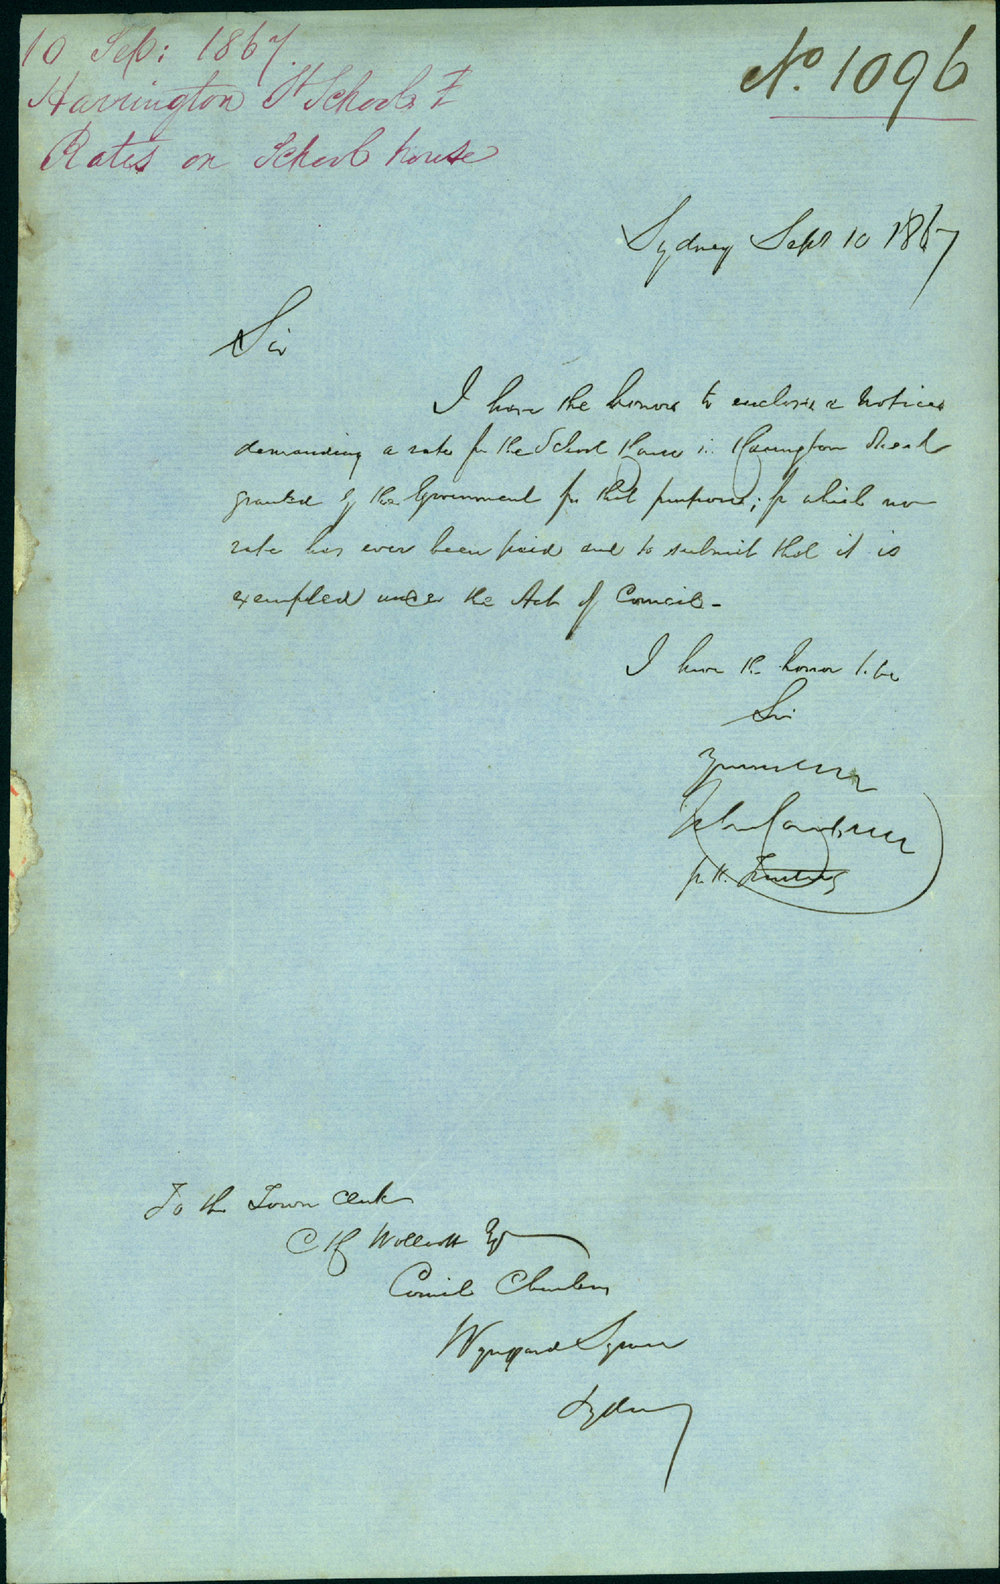 10 Sep: 1867.
Harrington St Schools
Rates on School house
No. 1096
Sydney Sept 10 1867
Sir
I have the honor to enclose a notice
demanding a rate for the School House in Harrington Street
granted by the Government for that purpose; for which no
rate has ever been paid and to submit that it is
exempted under the Act of Council -
I have the honor to be
Sir
for the Trustees
To the Town Clerk
C H Woolcott Esq
Council Chambers
Wynyard Square
Sydney